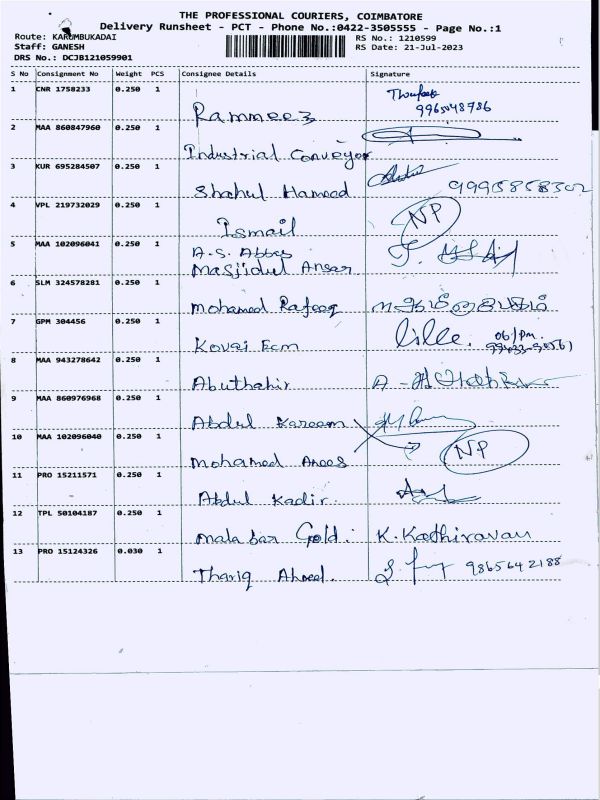 THE PROFESSIONAL COURIERS, COIMBATORE
Delivery Runsheet - PCT - Phone No.:0422-3505555 - Page No.:1
Route: KARUMBUKADAI RS No.: 1210599
Staff: GANESH RS Date: 21-Jul-2023
DRS No.: DCJB121059901
S No Consignment No Weight PCS Consignee Details Signature
1 CNR 1758233 0.250 1
Rammeez 9965048786
2 MAA 860847960 0.250 1
Industrial Conveyor
3 KUR 695284507 0.250 1
Shahul Hameed
4 VPL 219732029 0.250 1
Ismail NP
5 MAA 102096041 0.250 1
A.S. Abbas
Masjidul Ansar
6 SLM 324578281 0.250 1
Mohamed Rafeeq
7 GPM 304456 0.250 1
Kovai Ecm
8 MAA 943278642 0.250 1
Abuthahir
9 MAA 860976968 0.250 1
Abdul Kareem
10 MAA 102096040 0.250 1
Mohamed Anees NP
11 PRO 15211571 0.250 1
Abdul Kadir.
12 TPL 50104187 0.250 1
malabar Gold. K. Kathiravan
13 PRO 15124326 0.030 1
Thariq Ahmed. 9865642188